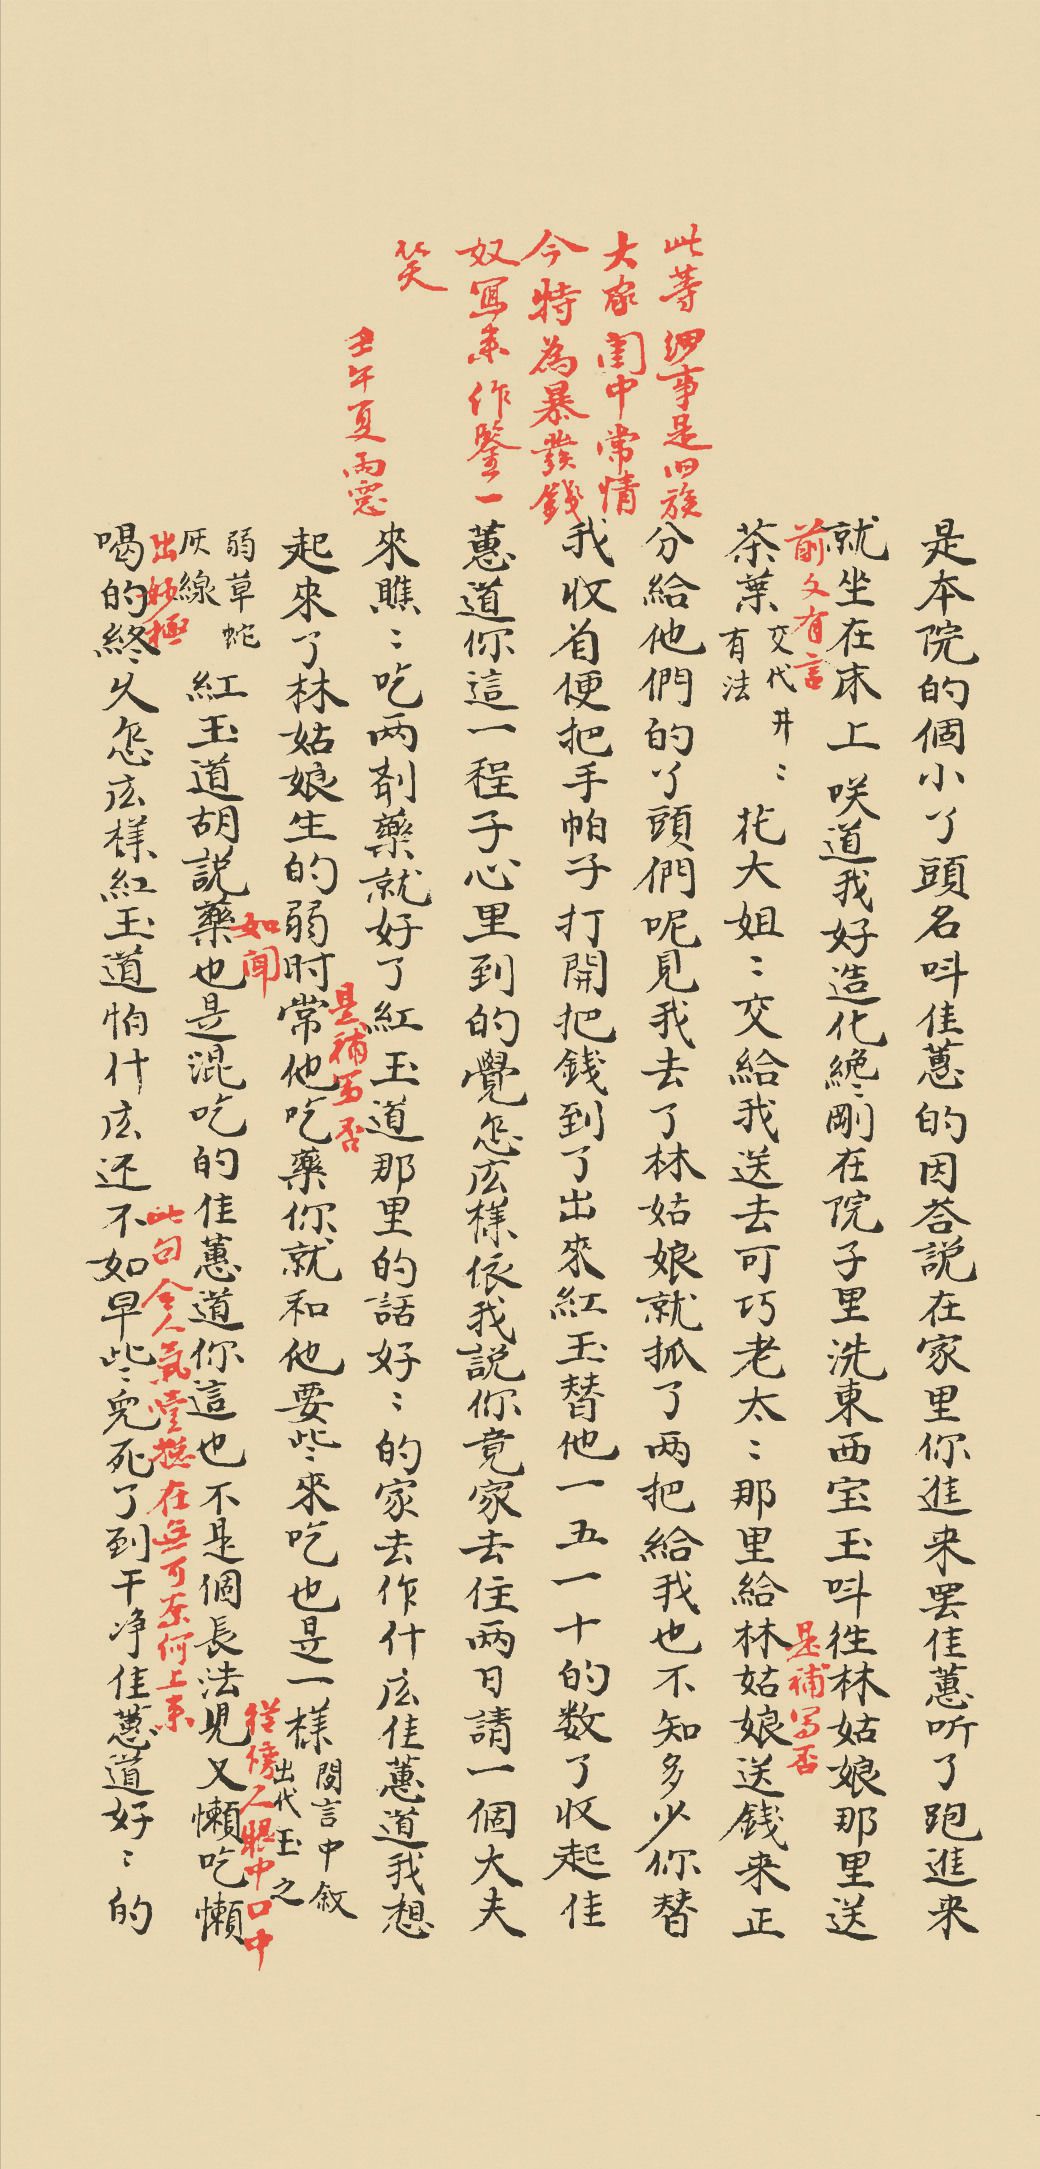 此等細事是旧族
大家閨中常情
今特為暴發錢
奴寫来作鑒一
笑
壬午夏雨窓
是本院的個小丫頭名呌佳蕙的因荅説在家里你進来罢佳蕙听了跑進来
就坐在床上咲道我好造化絶〻剛在院子里洗東西宝玉呌徃林姑娘那里送
前文有言
是補写否
茶葉
交代井〻
有法
花大姐〻交給我送去可巧老太〻那里給林姑娘送錢来正
分給他們的丫頭們呢見我去了林姑娘就抓了两把給我也不知多少你替
我收着便把手帕子打開把錢到了出來紅玉替他一五一十的数了收起佳
蕙道你這一程子心里到的覺怎庅樣依我説你竟家去住两日請一個大夫
來瞧〻吃两剤藥就好了紅玉道那里的話好〻的家去作什庅佳蕙道我想
是補写否
起來了林姑娘生的弱时常他吃藥你就和他要些〻來吃也是一樣
閒言中敘
出代玉之
如聞
從傍人眼中口中
弱草蛇
灰線
紅玉道胡説藥也是混吃的佳蕙道你這也不是個長法兒又懶吃懶
出妙極
此句令人氣噎捴在無可奈何上来
喝的終〻久怎庅樣紅玉道怕什庅还不如早些〻兒死了到干净佳蕙道好〻的